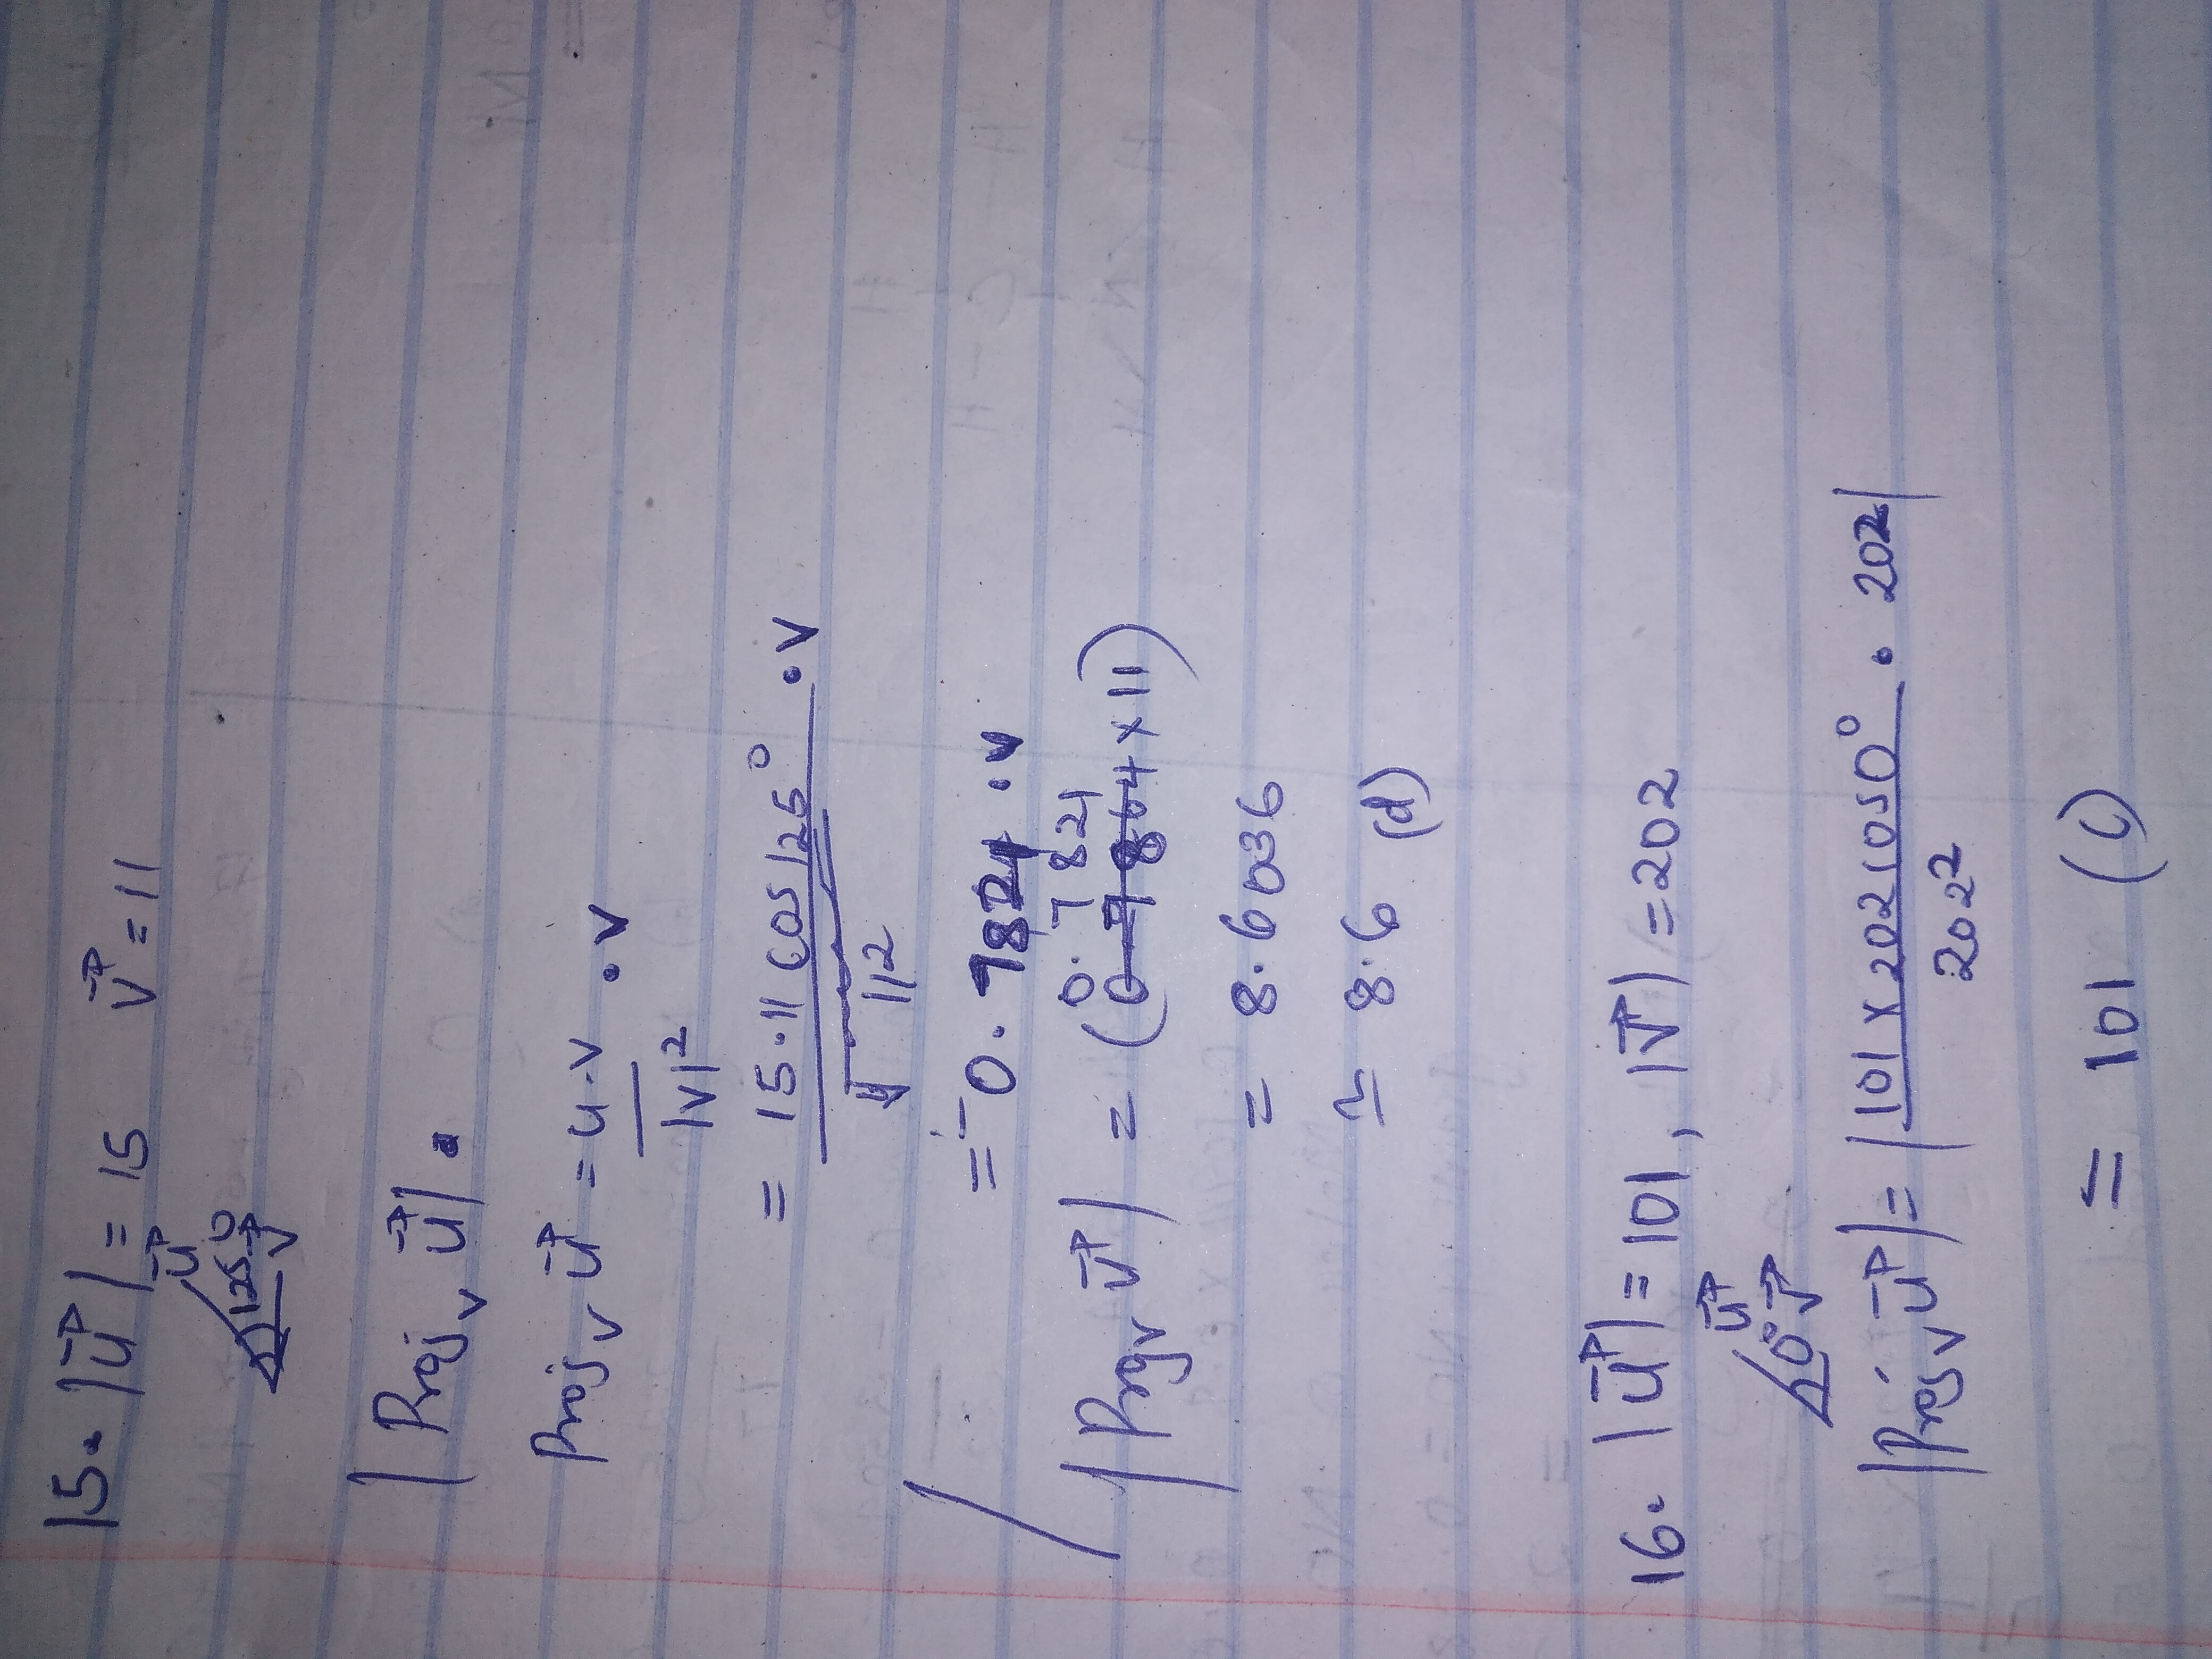 15. |u⃗| = 15 v⃗ = 11
u⃗
125° v⃗
|Proj_v u⃗|.
Proj_v u⃗ = u.v/|v|² . v
= 15.11 cos 125°/11² . v
= -0.7821 . v
|Proj_v v⃗| = (0.7821 x 11)
= 8.6036
≃ 8.6 (d)
16. |u⃗| = 101, |v⃗| = 202
u⃗
0° v⃗
|Proj_v u⃗| = |101 x 202 cos 0°/202² . 202|
= 101 (c)